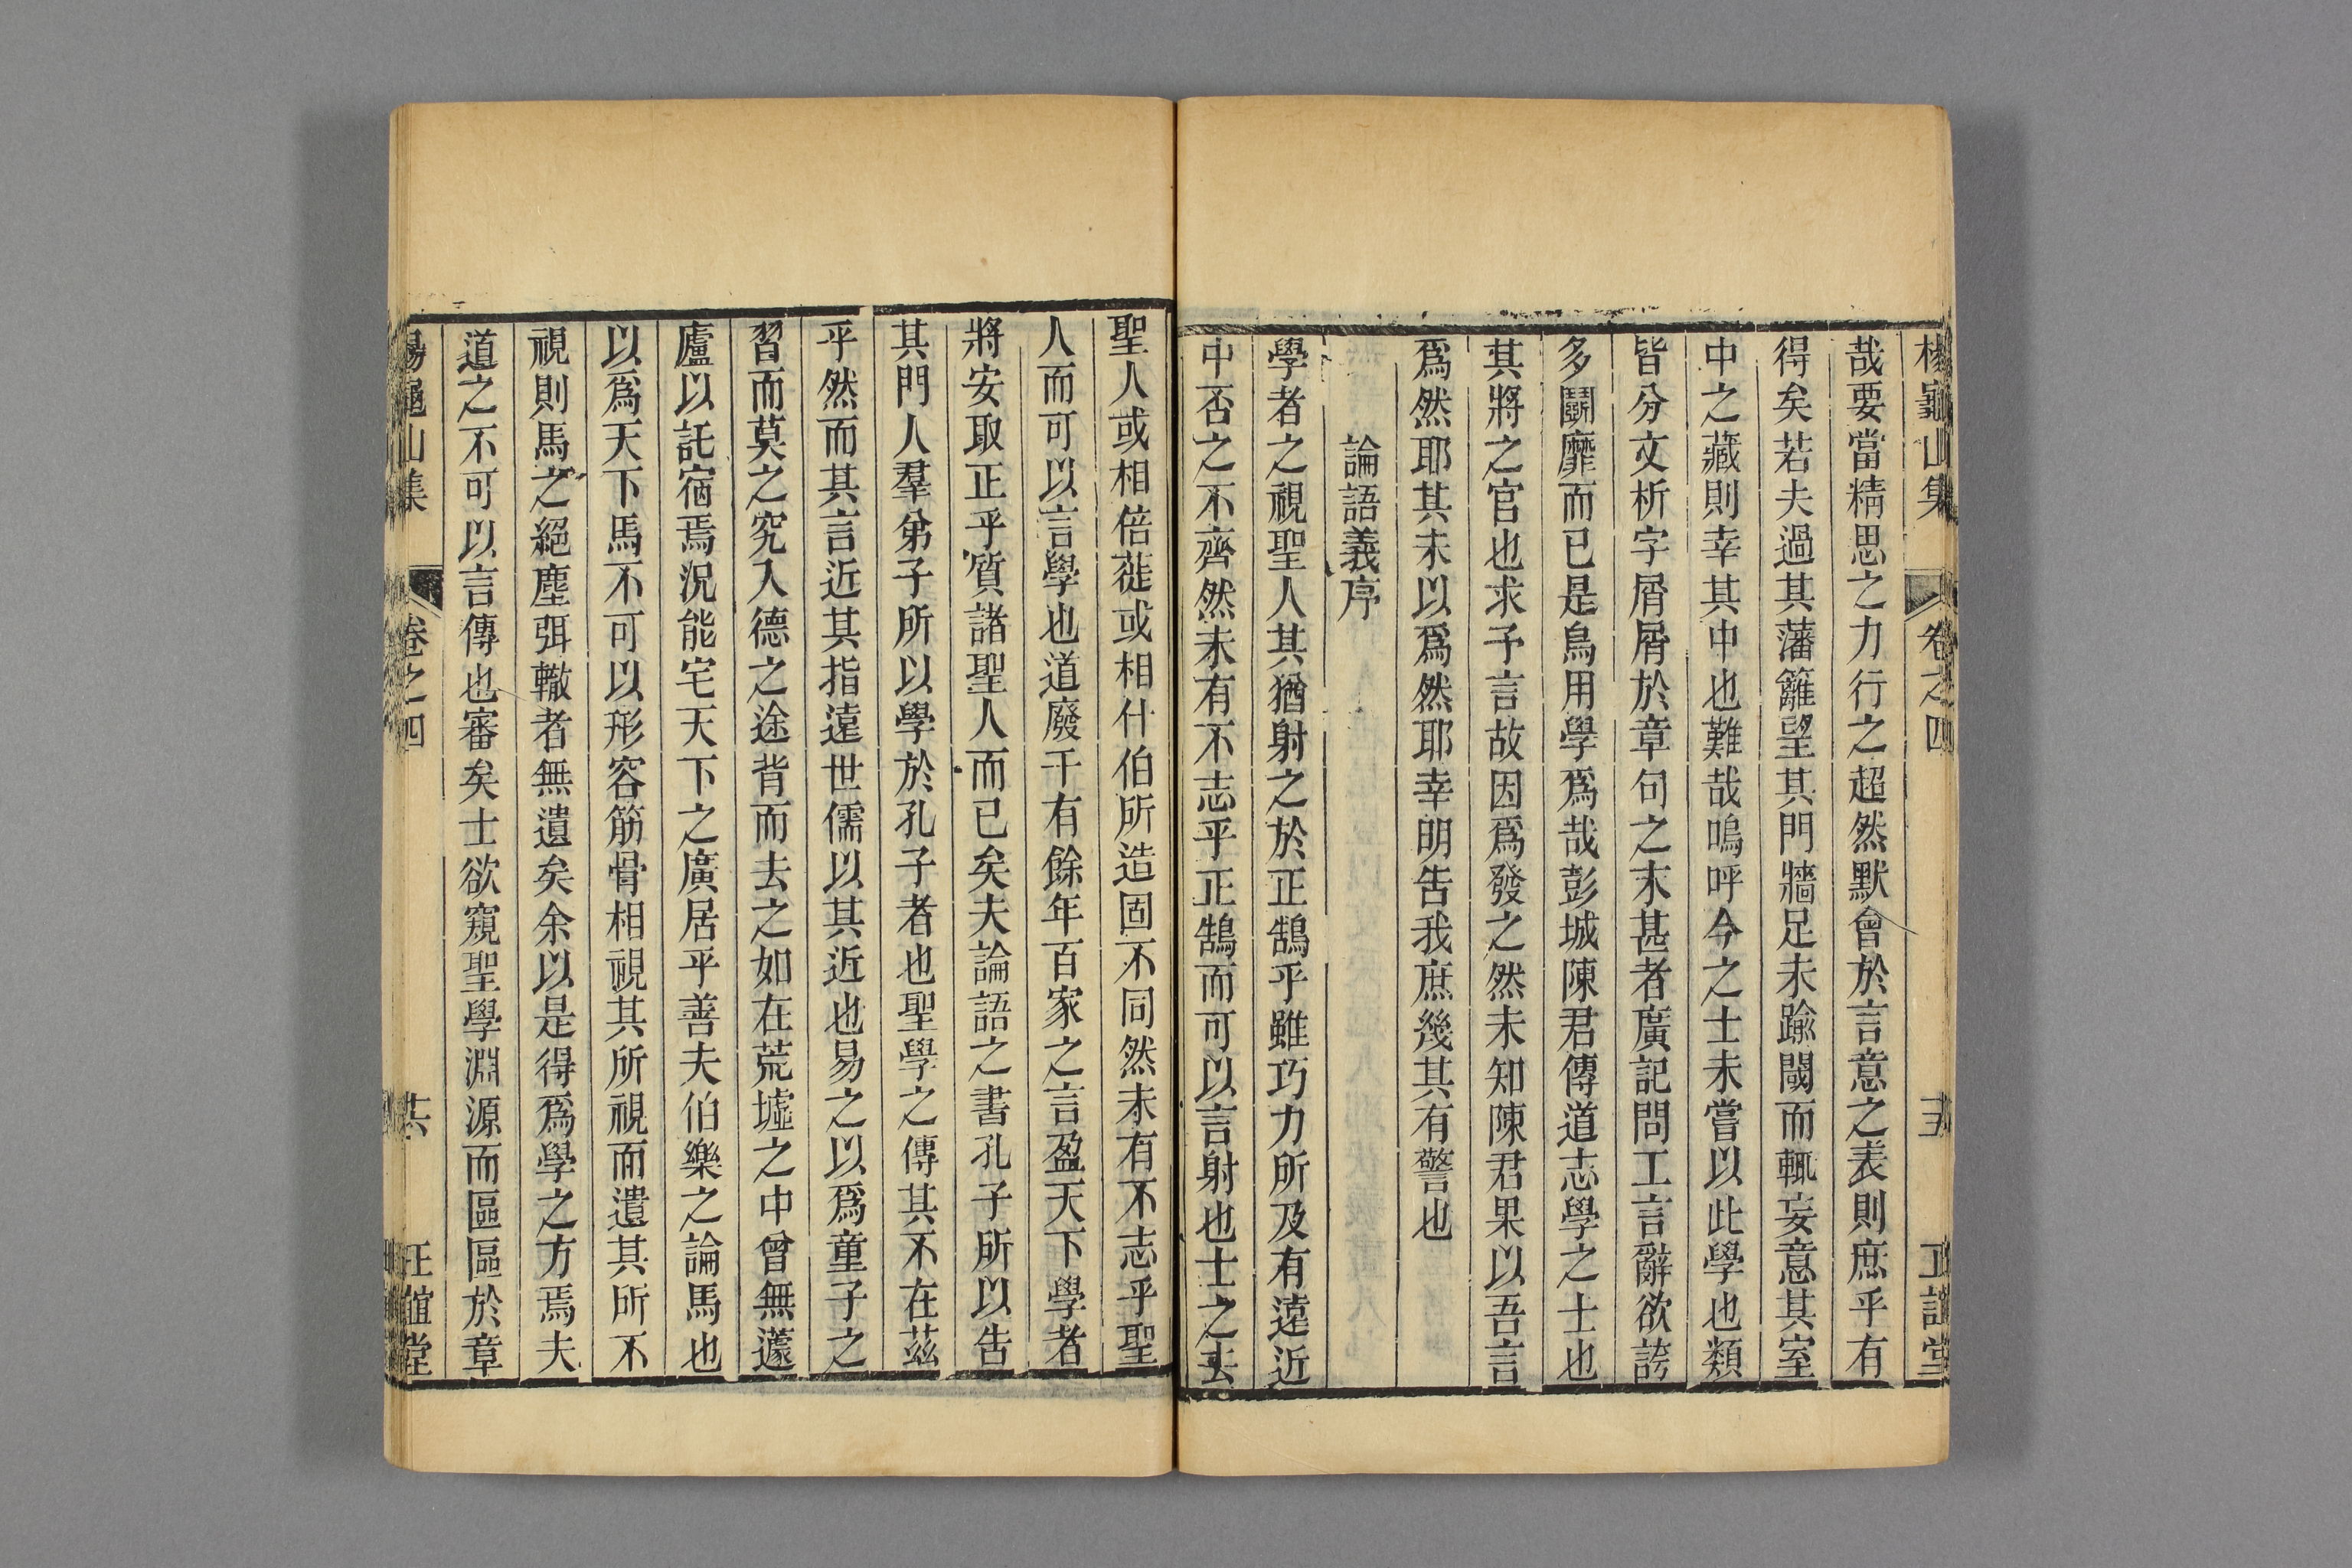 楊龜山集 卷之四 正誼堂
哉要當精思之力行之超然默會於言意之表則庶乎有
得矣若夫過其藩籬望其門牆足未踰閾而輒妄意其室
中之藏則幸其中也難哉嗚呼今之士未嘗以此學也類
皆分文析字屑屑於章句之末甚者廣記問工言辭欲誇
多鬬靡而已是烏用學爲哉彭城陳君傳道志學之士也
其將之官也求予言故因爲發之然未知陳君果以吾言
爲然耶其未以爲然耶幸明告我庶幾其有警也
論語義序
學者之視聖人其猶射之於正鵠乎雖巧力所及有遠近
中否之不齊然未有不志乎正鵠而可以言射也士之去
聖人或相倍蓰或相什伯所造固不同然未有不志乎聖
人而可以言學也道廢千有餘年百家之言盈天下學者
將安取正乎質諸聖人而已矣夫論語之書孔子所以告
其門人羣弟子所以學於孔子者也聖學之傳其不在茲
乎然而其言近其指遠世儒以其近也易之以爲童子之
習而莫之究入德之途背而去之如在荒墟之中曾無蘧
廬以託宿焉況能宅天下之廣居乎善夫伯樂之論馬也
以爲天下馬不可以形容筋骨相視其所視而遺其所不
視則馬之絕塵弭轍者無遺矣余以是得爲學之方焉夫
道之不可以言傳也審矣士欲窺聖學淵源而區區於章
楊龜山集 卷之四 共 正誼堂